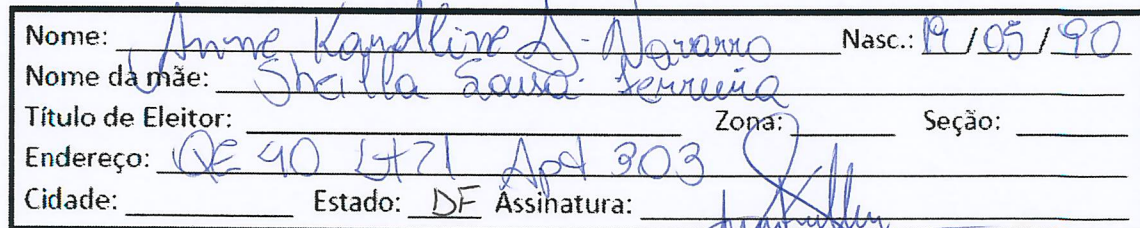 Nome: Anne Karolline S. Navarro Nasc.: 19/05/90
Nome da mãe: Sheilla Sousa Ferreira
Título de Eleitor: Zona: Seção:
Endereço: QE 40 Lt 71 Apt 303
Cidade: Estado: DF Assinatura: